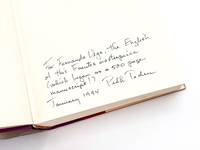 For Fernando Vega - The English
of this Fuentes masterpiece
(which began as a 500 page
manuscript!)
January 1994